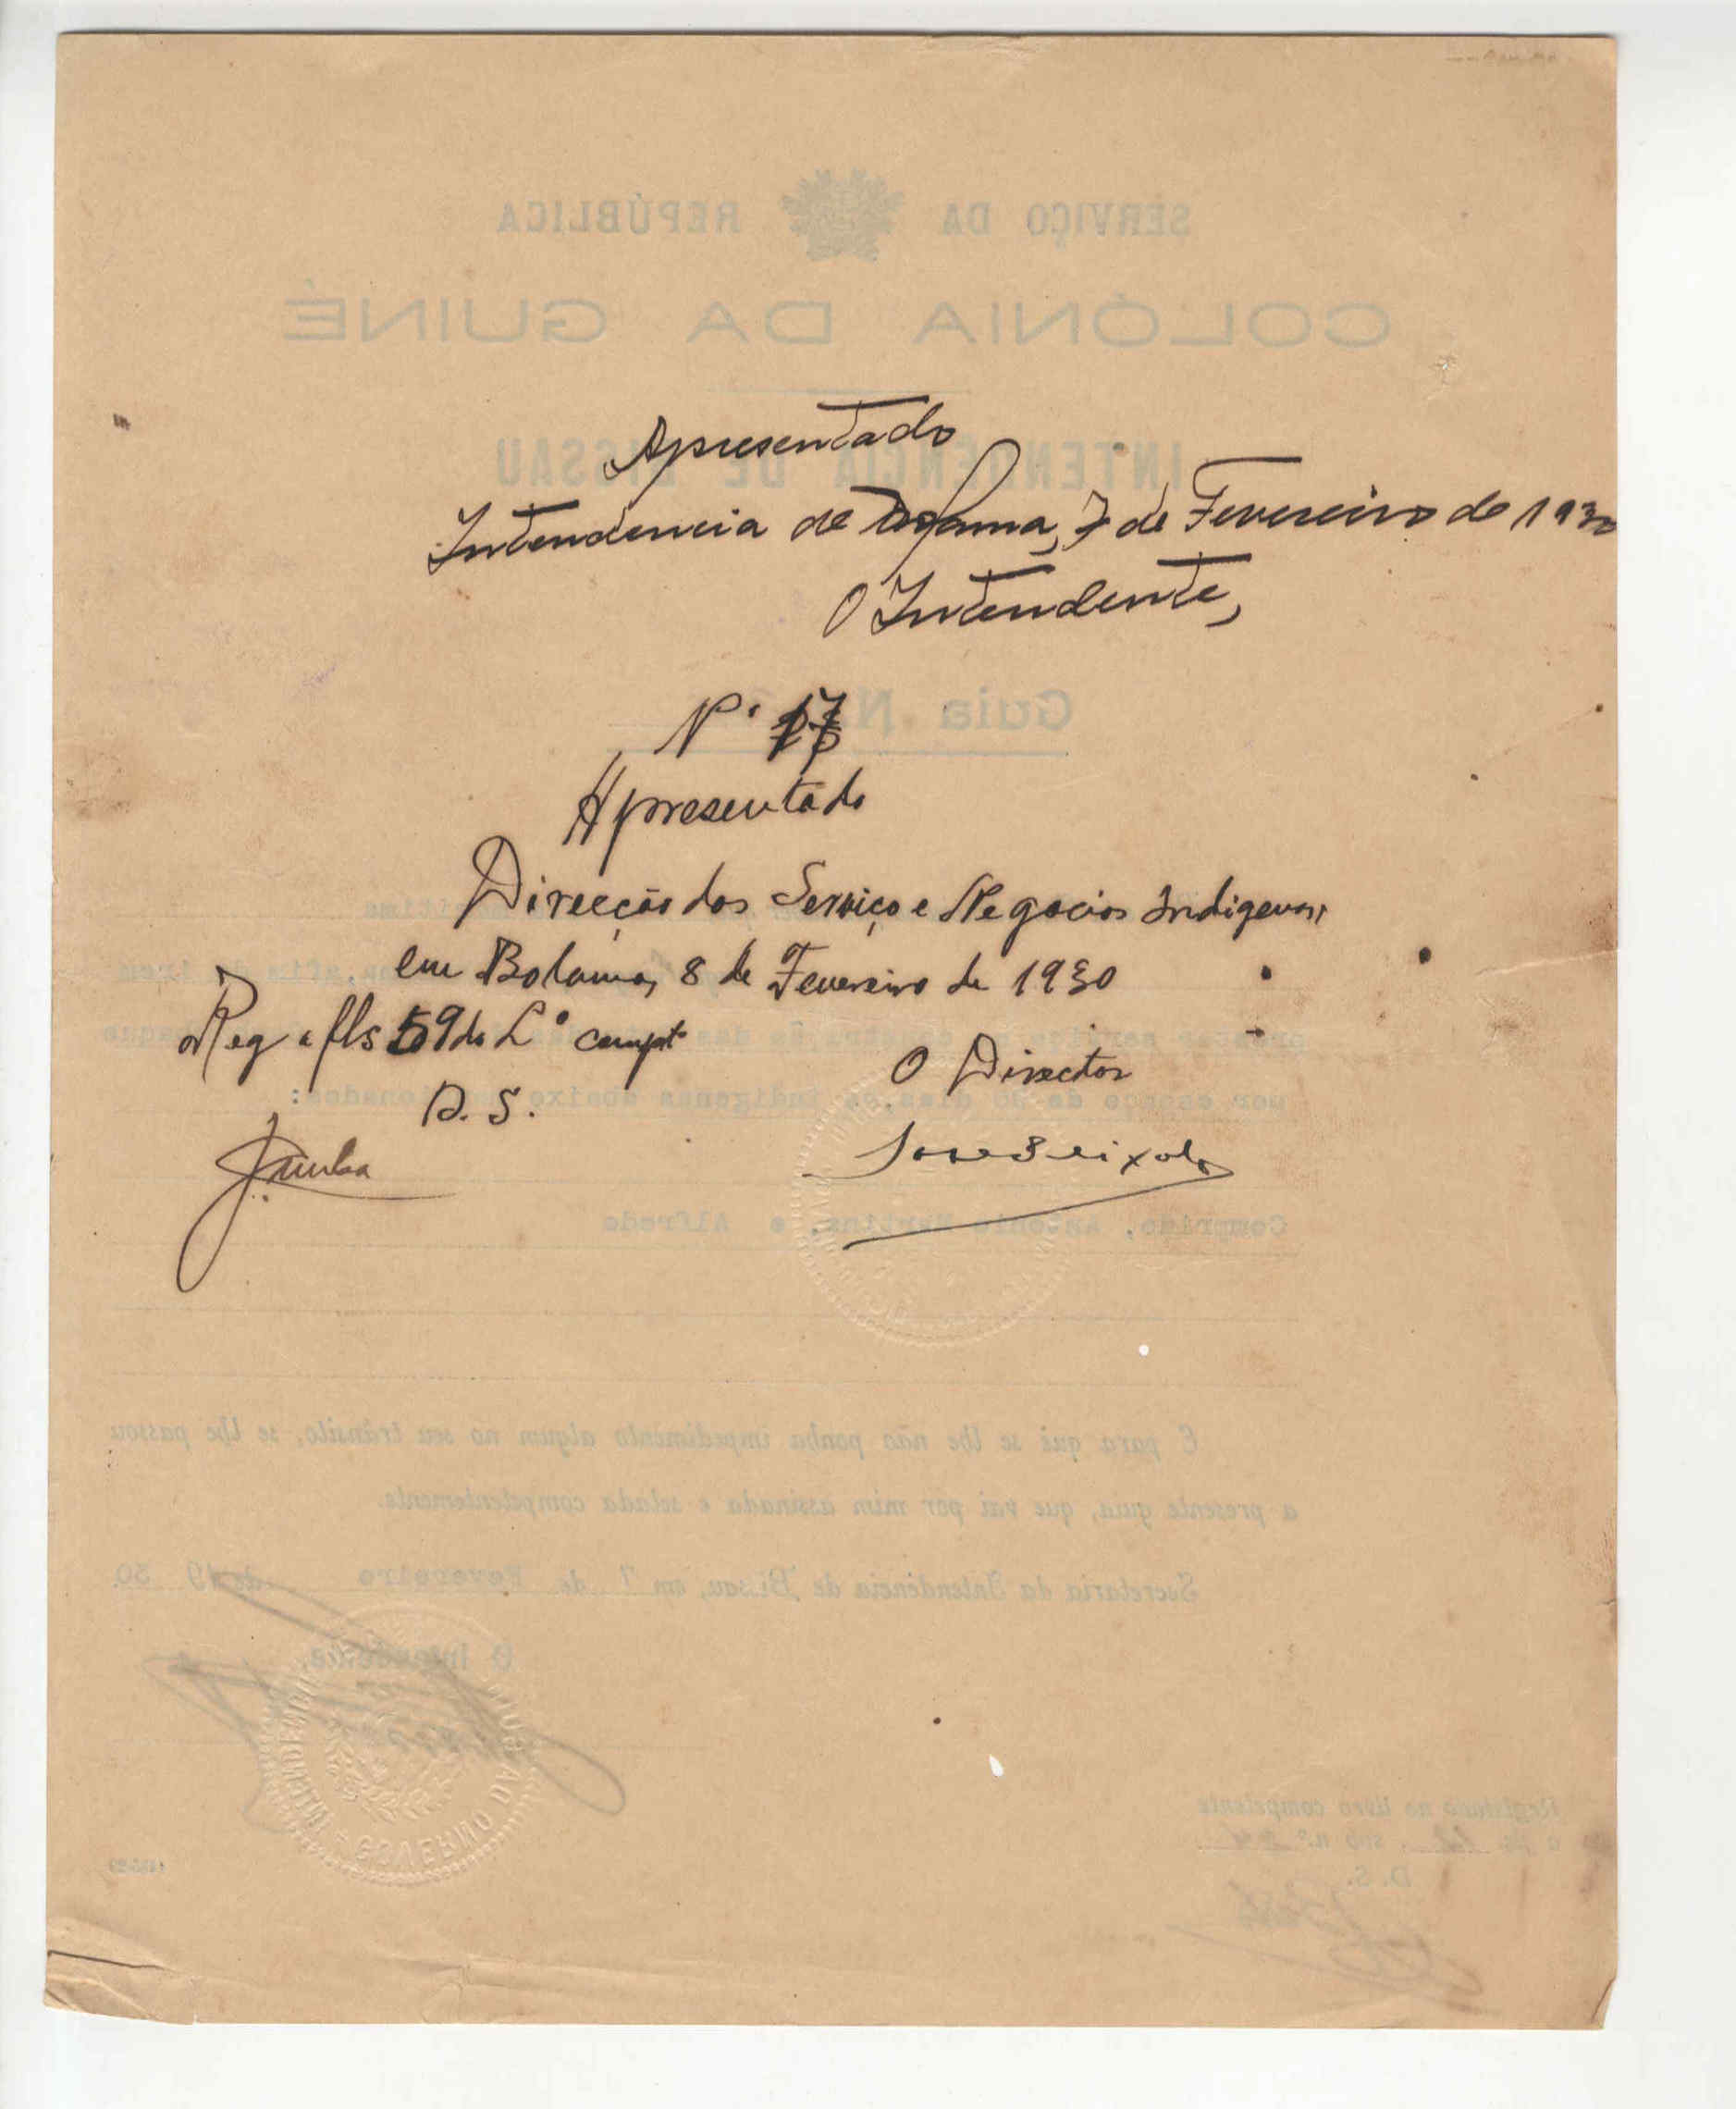 Apresentado
Intendencia de Bolama, 7 de Fevereiro de 1930
O Intendente,
Nº 17
Apresentado
Direcção dos Serviço e Negocios Indigenas,
em Bolama, 8 de Fevereiro de 1930
Reg a fls 59 do Lº compte
O Director
D. S.
SERVIÇO DA REPÚBLICA
COLÓNIA DA GUINÉ
INTENDENCIA DE BISSAU
Guia N
por espaço de 30 dias, os indigenas abaixo mencionados:
Comprido, Antonio Martins, e Alfredo
E para que se lhe não ponha impedimento algum no seu trânsito, se lhe passou
a presente guia, que vai por mim assinada e selada competentemente.
Secretaria da Intendência de Bissau, em 7 de Fevereiro de 19 30.
O Intendente,
Registado no livro competente
sob n.º
D. S.